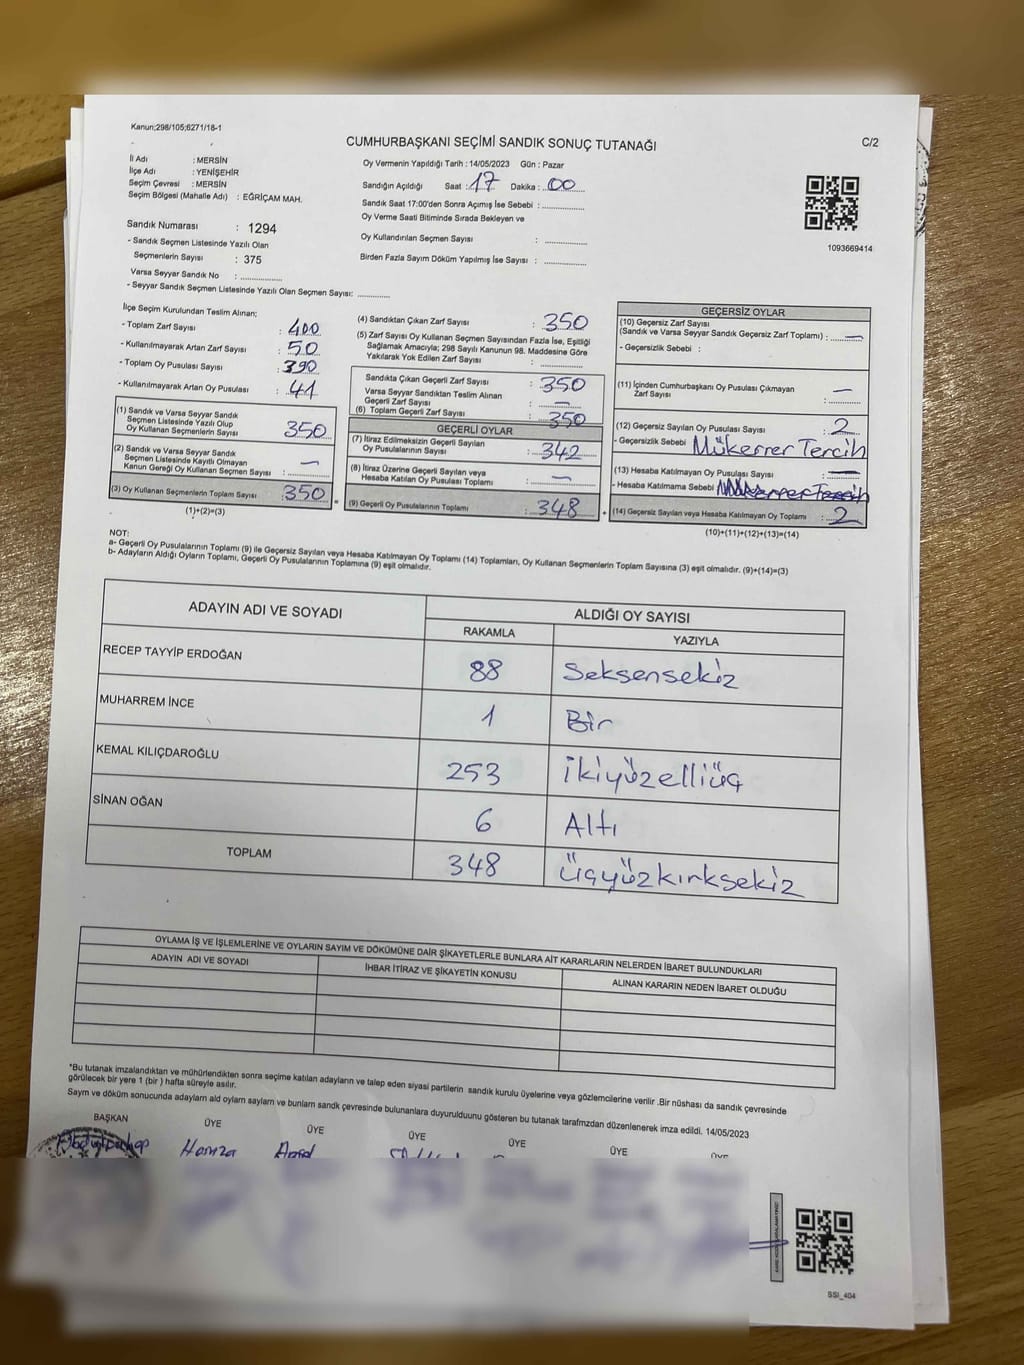 Kanun;298/105;6271/18-1
CUMHURBAŞKANI SEÇİMİ SANDIK SONUÇ TUTANAĞI
C/2
İl Adı : MERSİN
İlçe Adı : YENİŞEHİR
Seçim Çevresi : MERSİN
Seçim Bölgesi (Mahalle Adı) : EĞRİÇAM MAH.
Sandık Numarası : 1294
- Sandık Seçmen Listesinde Yazılı Olan
Seçmenlerin Sayısı : 375
Varsa Seyyar Sandık No : ..............
- Seyyar Sandık Seçmen Listesinde Yazılı Olan Seçmen Sayısı: ............
Oy Vermenin Yapıldığı Tarih : 14/05/2023 Gün : Pazar
Sandığın Açıldığı Saat : 17 Dakika : 00
Sandık Saat 17:00'den Sonra Açımış İse Sebebi : ..............
Oy Verme Saati Bitiminde Sırada Bekleyen ve
Oy Kullandırılan Seçmen Sayısı : ..............
Birden Fazla Sayım Döküm Yapılmış İse Sayısı : ..............
1093669414
İlçe Seçim Kurulundan Teslim Alınan;
- Toplam Zarf Sayısı : 400
- Kullanılmayarak Artan Zarf Sayısı : 50
- Toplam Oy Pusulası Sayısı : 390
- Kullanılmayarak Artan Oy Pusulası : 41
(1) Sandık ve Varsa Seyyar Sandık
Seçmen Listesinde Yazılı Olup
Oy Kullanan Seçmenlerin Sayısı 350
(2) Sandık ve Varsa Seyyar Sandık
Seçmen Listesinde Kayıtlı Olmayan
Kanun Gereği Oy Kullanan Seçmen Sayısı : —
(3) Oy Kullanan Seçmenlerin Toplam Sayısı : 350
(1)+(2)=(3)
(4) Sandıktan Çıkan Zarf Sayısı : 350
(5) Zarf Sayısı Oy Kullanan Seçmen Sayısından Fazla İse, Eşitliği
Sağlamak Amacıyla; 298 Sayılı Kanunun 98. Maddesine Göre
Yakılarak Yok Edilen Zarf Sayısı : ..............
Sandıkta Çıkan Geçerli Zarf Sayısı : 350
Varsa Seyyar Sandıktan Teslim Alınan
Geçerli Zarf Sayısı : —
(6) Toplam Geçerli Zarf Sayısı : 350
GEÇERLİ OYLAR
(7) İtiraz Edilmeksizin Geçerli Sayılan
Oy Pusulalarının Sayısı : 342
(8) İtiraz Üzerine Geçerli Sayılan veya
Hesaba Katılan Oy Pusulası Toplamı : —
(9) Geçerli Oy Pusulalarının Toplamı : 348
GEÇERSİZ OYLAR
(10) Geçersiz Zarf Sayısı
(Sandık ve Varsa Seyyar Sandık Geçersiz Zarf Toplamı) : —
- Geçersizlik Sebebi :
(11) İçinden Cumhurbaşkanı Oy Pusulası Çıkmayan
Zarf Sayısı : —
(12) Geçersiz Sayılan Oy Pusulası Sayısı : 2
- Geçersizlik Sebebi Mükerrer Tercih
(13) Hesaba Katılmayan Oy Pusulası Sayısı : —
- Hesaba Katılmama Sebebi Mükerrer Tercih
(14) Geçersiz Sayılan veya Hesaba Katılmayan Oy Toplamı : 2
(10)+(11)+(12)+(13)=(14)
NOT:
a- Geçerli Oy Pusulalarının Toplamı (9) ile Geçersiz Sayılan veya Hesaba Katılmayan Oy Toplamı (14) Toplamları, Oy Kullanan Seçmenlerin Toplam Sayısına (3) eşit olmalıdır. (9)+(14)=(3)
b- Adayların Aldığı Oyların Toplamı, Geçerli Oy Pusulalarının Toplamına (9) eşit olmalıdır.
ADAYIN ADI VE SOYADI
ALDIĞI OY SAYISI
RAKAMLA
YAZIYLA
RECEP TAYYİP ERDOĞAN 88 Seksensekiz
MUHARREM İNCE 1 Bir
KEMAL KILIÇDAROĞLU 253 İkiyüzelliüç
SİNAN OĞAN 6 Altı
TOPLAM 348 Üçyüzkırksekiz
OYLAMA İŞ VE İŞLEMLERİNE VE OYLARIN SAYIM VE DÖKÜMÜNE DAİR ŞİKAYETLERLE BUNLARA AİT KARARLARIN NELERDEN İBARET BULUNDUKLARI
ADAYIN ADI VE SOYADI
İHBAR İTİRAZ VE ŞİKAYETİN KONUSU
ALINAN KARARIN NEDEN İBARET OLDUĞU
*Bu tutanak imzalandıktan ve mühürlendikten sonra seçime katılan adayların ve talep eden siyasi partilerin sandık kurulu üyelerine veya gözlemcilerine verilir .Bir nüshası da sandık çevresinde
görülecek bir yere 1 (bir ) hafta süreyle asılır.
Sayım ve döküm sonucunda adayların ald oyların sayların ve bunların sandk çevresinde bulunanlara duyurulduunu gösteren bu tutanak tarafmzdan düzenlenerek imza edildi. 14/05/2023
BAŞKAN ÜYE ÜYE ÜYE ÜYE ÜYE ÜYE
Hamza
SSI_404